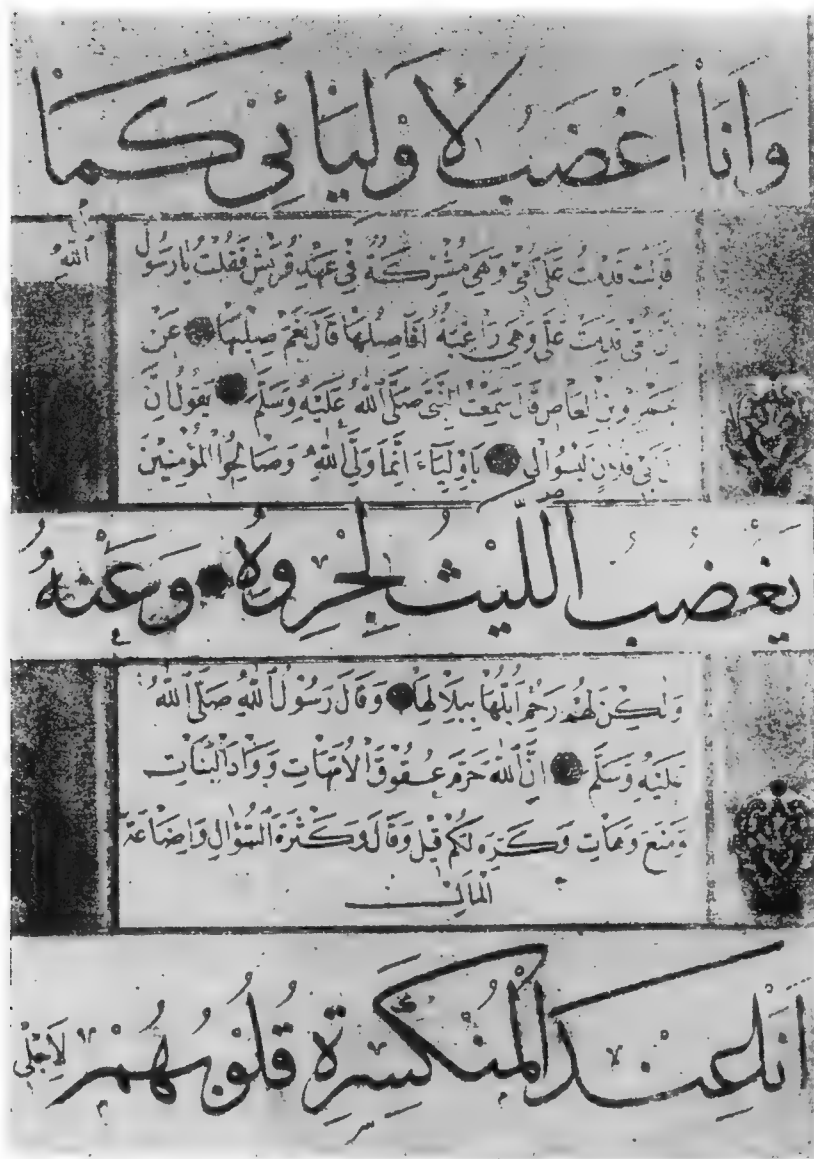 وَاَنَا اَغْضَبُ لِاَوْلِيَائِي كَمَا
قَالَتْ قَدِمَتْ عَلَيَّ اُمِّي وَهِيَ مُشْرِكَةٌ فِي عَهْدِ قُرَيْشٍ فَقُلْتُ يَا رَسُولَ
اللّٰهِ
اِنَّ اُمِّي قَدِمَتْ عَلَيَّ وَهِيَ رَاغِبَةٌ اَفَاَصِلُهَا قَالَ نَعَمْ صِلِيهَا عَنْ
عَمْرِو بْنِ الْعَاصِ قَالَ سَمِعْتُ النَّبِيَّ صَلَّى اللّٰهُ عَلَيْهِ وَسَلَّمَ يَقُولُ اِنَّ
اٰلَ اَبِي فُلَانٍ لَيْسُوا لِي بِاَوْلِيَاءَ اِنَّمَا وَلِيِّيَ اللّٰهُ وَصَالِحُوا الْمُؤْمِنِينَ
يَغْضَبُ اللَّيْثُ لِجَرْوِهِ وَعَنْهُ
وَلٰكِنْ لَهُمْ رَحِمٌ اَبُلُّهَا بِبِلَالِهَا وَقَالَ رَسُولُ اللّٰهِ صَلَّى اللّٰهُ
عَلَيْهِ وَسَلَّمَ اِنَّ اللّٰهَ حَرَّمَ عُقُوقَ الْاُمَّهَاتِ وَوَاْدَ الْبَنَاتِ
وَمَنْعَ وَهَاتِ وَكَرِهَ لَكُمْ قِيلَ وَقَالَ وَكَثْرَةَ السُّؤَالِ وَاِضَاعَةَ
الْمَالِ
اَنَا عِنْدَ الْمُنْكَسِرَةِ قُلُوبُهُمْ لِاَجْلِي